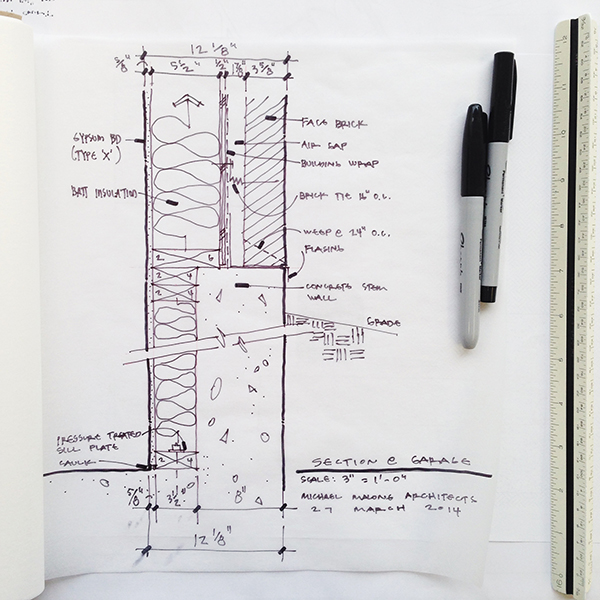 12 1/8"
5/8" 5 1/2" 1/2" 3 5/8"
GYPSUM BD
(TYPE 'X')
BATT INSULATION
FACE BRICK
AIR GAP
BUILDING WRAP
BRICK TIE 16" O.C.
WEEP @ 24" O.C.
FLASING
2 6
2 4
CONCRETE STEM
WALL
GRADE
PRESSURE TREATED
SILL PLATE
CAULK
2 4
5/8" 3 1/2" 8"
12 1/8"
SECTION @ GARAGE
SCALE: 3" = 1'-0"
MICHAEL MALONE ARCHITECTS
27 MARCH 2014
Sharpie